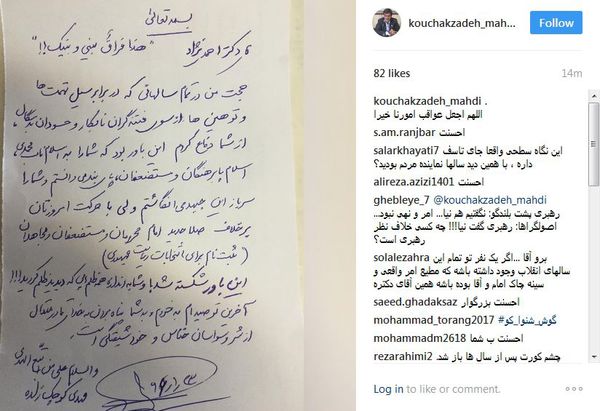 بسمه تعالی
دکتر احمدی نژاد "هذا فراق بینی و بینک!!"
حجت من در تمام سالهائی که در برابر سیل تهمت ها
و توهین ها از سوی فتنه گران نابکار و حسودان بدسگال،
از شما دفاع کردم این باور بود که شما را به اسلام ناب محمدی،
اسلام پابرهنگان و مستضعفان، پای بند می دانستم و شما را
سرباز این جبهه می انگاشتم ولی با حرکت امروزتان
برخلاف صلاحدید امام محرومان و مستضعفان و مجاهدان
(ثبت نام برای انتخابات ریاست جمهوری)
این باور شکسته شد! و شما به اندازه هر ظلمی که دیدید ظلم کردید!!!
آخرین توصیه ام به خودم و به شما پناه بردن به خدای متعال
از شر وسواس خناس و خودشیفتگی است.
والسلام علی من اتبع الهدی
مهدی کوچک زاده
kouchakzadeh_mahd...
Follow
82 likes
14m
kouchakzadeh_mahdi .
اللهم اجعل عواقب امورنا خیرا
s.am.ranjbar احسنت
salarkhayati7 این نگاه سطحی واقعا جای تاسف
داره ، با همین دید سالها نماینده مردم بودید؟
alireza.azizi1401 احسنت
ghebleye_7 @kouchakzadeh_mahdi
رهبری پشت بلندگو: نگفتیم هم نیا... امر و نهی نبود...
اصولگراها: رهبری گفت نیا!!! چه کسی خلاف نظر
رهبری است؟
solalezahra برو آقا ...اگر یک نفر تو تمام این
سالهای انقلاب وجود داشته باشه که مطیع امر واقعی و
سینه چاک امام و آقا بوده باشه همین آقای دکتره
saeed.ghadaksaz احسنت بزرگوار
mohammad_torang2017 #گوش_شنوا_کو
mohammadm2618 احسنت ب شما
rezarahimi2 چشم کورت پس از سال ها باز شد.
Log in to like or comment.